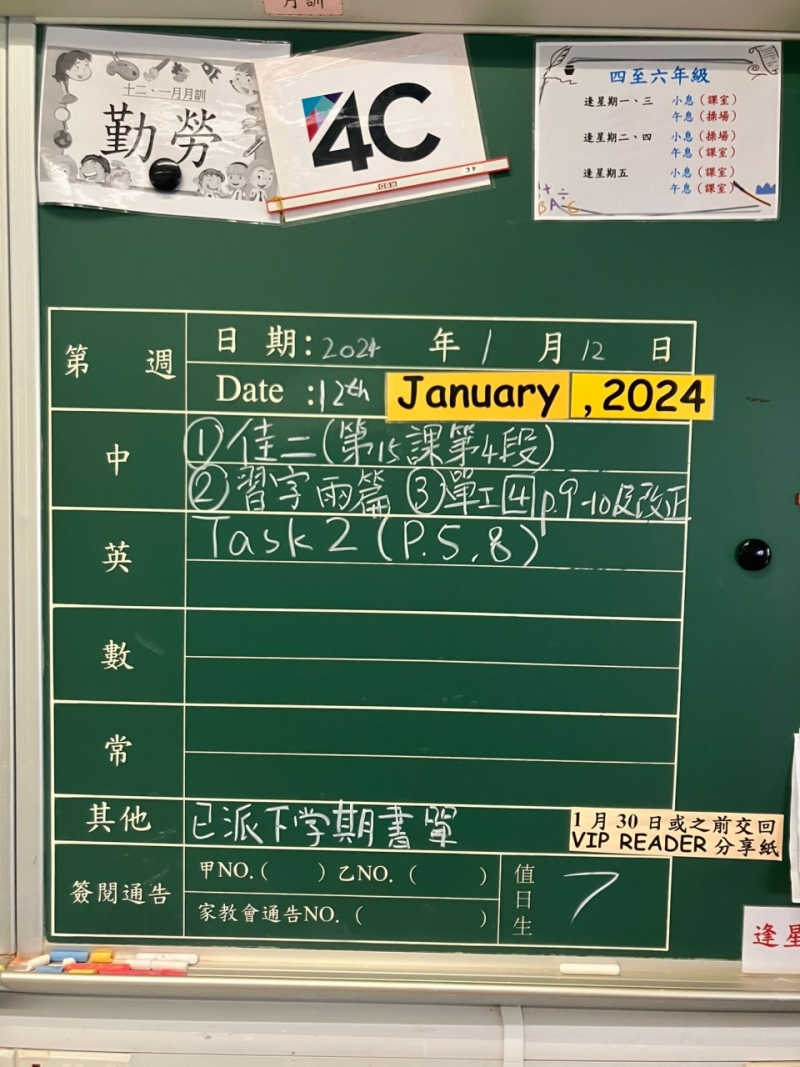 月訓
十二、一月月訓
勤勞
4C
四至六年級
逢星期一、三 小息（課室）
午息（操場）
逢星期二、四 小息（操場）
午息（課室）
逢星期五 小息（課室）
午息（課室）
第 週
日 期：2024 年 1 月 12 日
Date :12th January , 2024
中
①佳二(第15課第4段)
②習字雨篇 ③單工4 p.9-10及改正
英
Task 2 (P.5,8)
數
常
其他
已派下学期書單
1月30日或之前交回
VIP READER 分享紙
簽閱通告
甲NO.( ) 乙NO. ( )
家教會通告NO. ( )
值日生
7
逢星